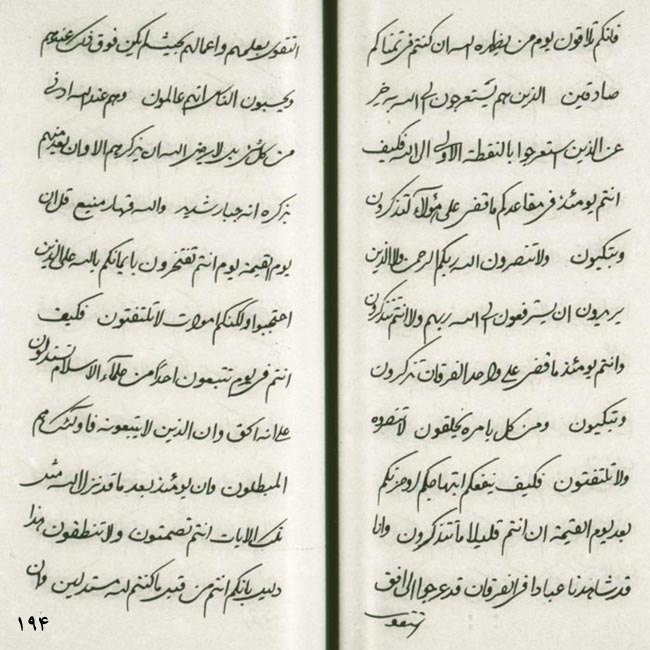 فانكم تلاقون يوم من يظهره الله ان كنتم في ثمناكم
صادقين الذين هم يستعرجون الى الله به خير
عن الذين استعرجوا بالنقطة الاولى الى الله فكيف
انتم يومئذ في مقاعدكم ما قضى على هؤلاء لتذكرون
وتبكيون ولا تنصرون الله ربكم الرحمن ولا الذين
يريدون ان يسترفعون الى الله ربهم ولا انتم تتذكرون
وانتم يومئذ ما قضى على واحد الفرقان تذكرون
وتبكيون ومن كل بامره يخلقون لا تنصره
ولا تلتفتون فكيف ينفعكم ابتهاجكم او حزنكم
بعد يوم القيمة ان انتم قليلا ما تتذكرون وانا
قد شاهدنا عبادا في الفرقان قد عرجوا الى افق
التقوى بعلمهم واعمالهم بحيث لم يكن فوق ذلك عندهم
ويحسبون الناس انهم عالمون وهم عند الله ادنى
من كل شئ لا يرضى الله ان يذكرهم الا وان يعد منهم
بذكره انه جبار شديد والله قهار منيع قل ان
يوم القيمة يوم انتم تفتخرون بايمانكم بالله على الذين
احتجبوا ولكنكم اموات لا تلتفتون فكيف
انتم في يوم تتبعون احدا من علماء الاسلام تستدلون
على انه الحق وان الذين لا يتبعونه فاولئك هم
المبطلون وان يومئذ بعد ما قد نزل الله مثل
تلك الايات انتم تصمتون ولا تنطقون هذا
دليل بانكم انتم من قبل ما كنتم لله مستدلين وان
۱۹۴